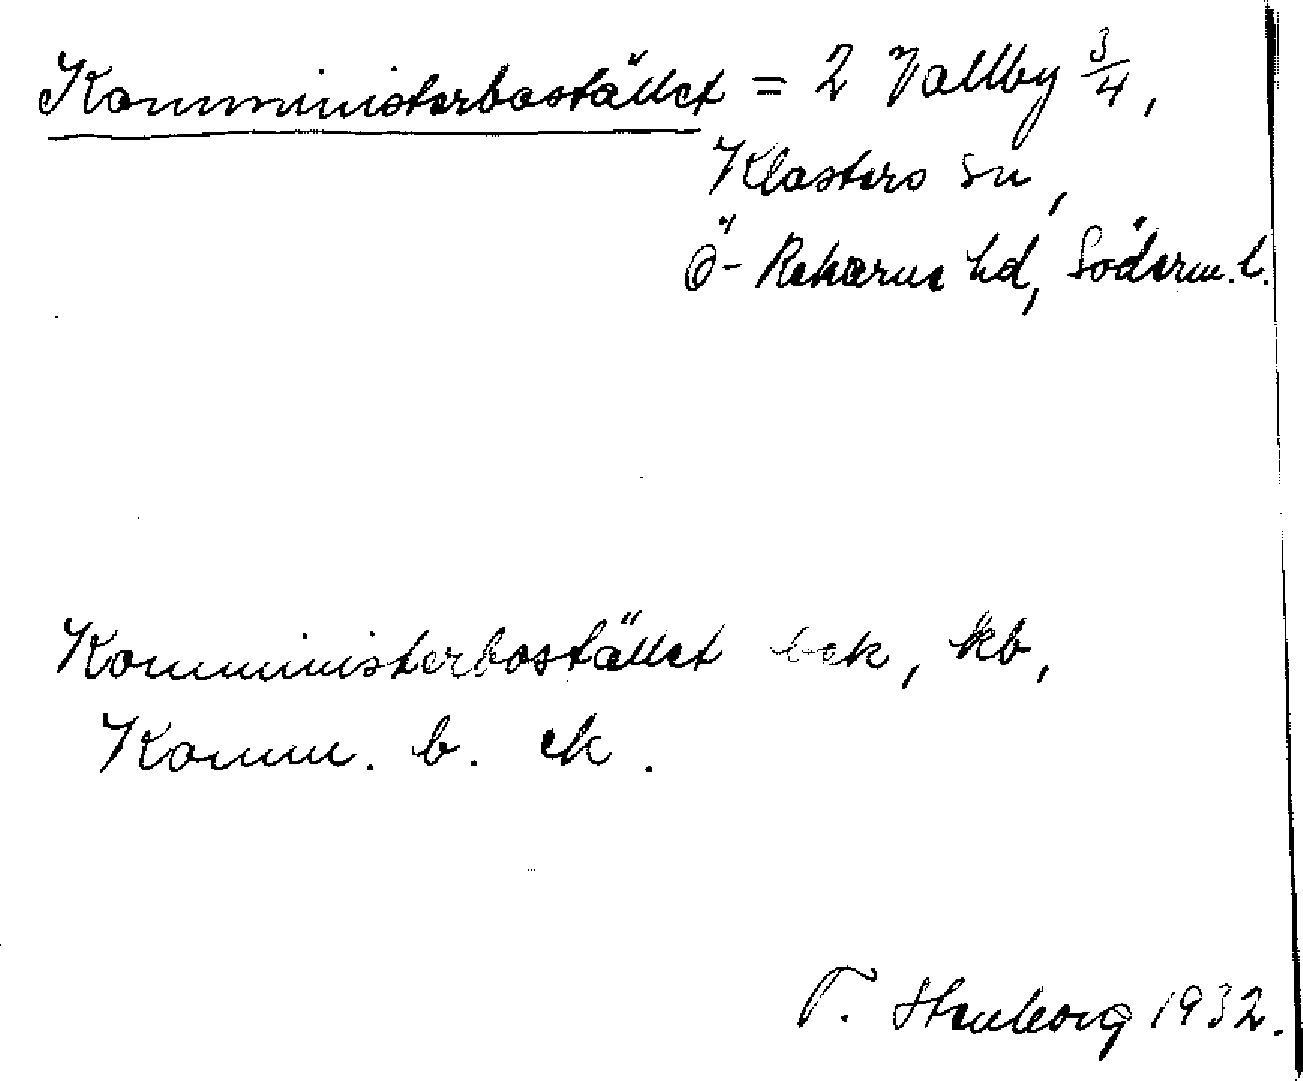 Komministerbostället = 2 Vallby 3/4,
Klosters sn,
Ö-Rekarne hd, Söderm. l.
Komministerbostället bek, kb,
Komm. b. ek.
T. Stenborg 1932.